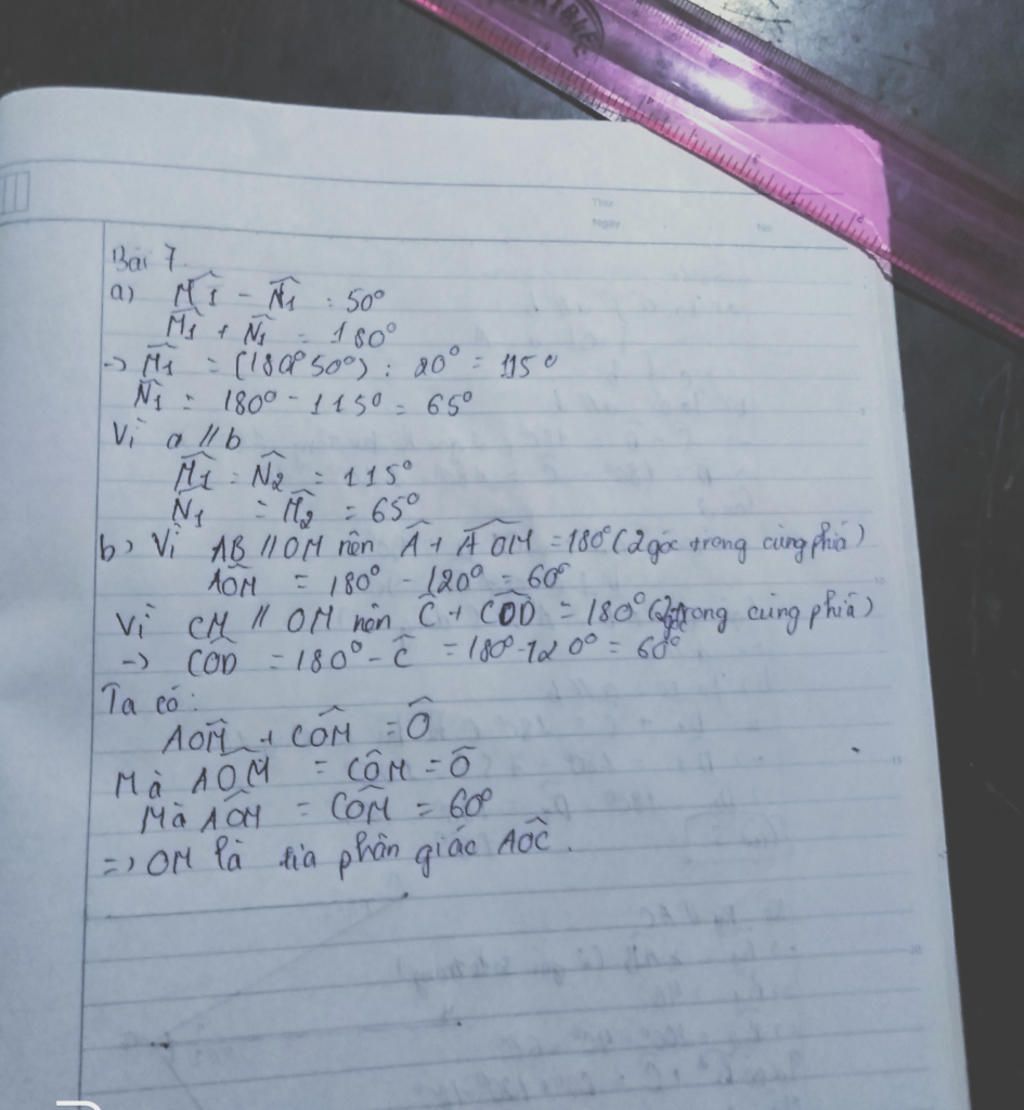 Thứ
Ngày
No
Bài 7
a) M̂1 - N̂1 = 50°
M̂1 + N̂1 = 180°
-> M̂1 = (180° 50°) : 20° = 115°
N̂1 = 180° - 115° = 65°
Vì a // b
M̂1 = N̂2 = 115°
N̂1 = M̂2 = 65°
b) Vì AB // OM nên Â + AÔM = 180° (2 góc trong cùng phía)
AÔM = 180° - 120° = 60°
Vì CM // OM nên Ĉ + CÔD = 180° (2 trong cùng phía)
-> CÔD = 180° - Ĉ = 180° - 120° = 60°
Ta có:
AÔM + CÔM = Ô
Mà AÔM = CÔM = Ô
Mà AÔM = CÔM = 60°
=> OM là tia phân giác AÔC.